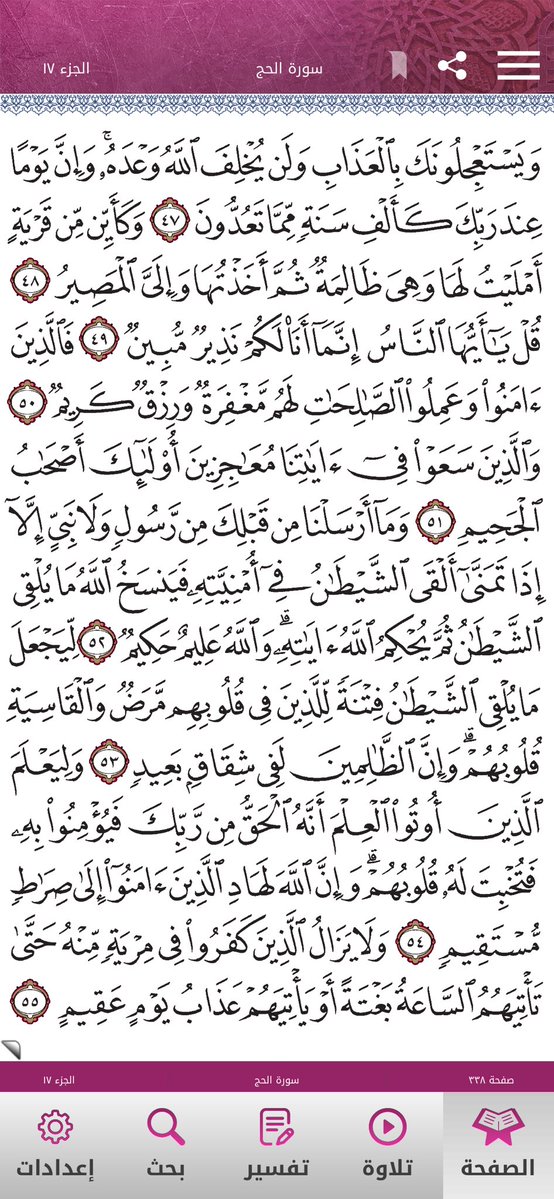 الجزء ١٧ سورة الحج
وَيَسۡتَعۡجِلُونَكَ بِٱلۡعَذَابِ وَلَن يُخۡلِفَ ٱللَّهُ وَعۡدَهُۥۚ وَإِنَّ يَوۡمًا
عِندَ رَبِّكَ كَأَلۡفِ سَنَةٖ مِّمَّا تَعُدُّونَ ٤٧ وَكَأَيِّن مِّن قَرۡيَةٍ
أَمۡلَيۡتُ لَهَا وَهِيَ ظَالِمَةٞ ثُمَّ أَخَذۡتُهَا وَإِلَيَّ ٱلۡمَصِيرُ ٤٨
قُلۡ يَٰٓأَيُّهَا ٱلنَّاسُ إِنَّمَآ أَنَا۠ لَكُمۡ نَذِيرٞ مُّبِينٞ ٤٩ فَٱلَّذِينَ
ءَامَنُواْ وَعَمِلُواْ ٱلصَّٰلِحَٰتِ لَهُم مَّغۡفِرَةٞ وَرِزۡقٞ كَرِيمٞ ٥٠
وَٱلَّذِينَ سَعَوۡاْ فِيٓ ءَايَٰتِنَا مُعَٰجِزِينَ أُوْلَٰٓئِكَ أَصۡحَٰبُ
ٱلۡجَحِيمِ ٥١ وَمَآ أَرۡسَلۡنَا مِن قَبۡلِكَ مِن رَّسُولٖ وَلَا نَبِيٍّ إِلَّآ
إِذَا تَمَنَّىٰٓ أَلۡقَى ٱلشَّيۡطَٰنُ فِيٓ أُمۡنِيَّتِهِۦ فَيَنسَخُ ٱللَّهُ مَا يُلۡقِي
ٱلشَّيۡطَٰنُ ثُمَّ يُحۡكِمُ ٱللَّهُ ءَايَٰتِهِۦۗ وَٱللَّهُ عَلِيمٌ حَكِيمٞ ٥٢ لِّيَجۡعَلَ
مَا يُلۡقِي ٱلشَّيۡطَٰنُ فِتۡنَةٗ لِّلَّذِينَ فِي قُلُوبِهِم مَّرَضٞ وَٱلۡقَاسِيَةِ
قُلُوبُهُمۡۗ وَإِنَّ ٱلظَّٰلِمِينَ لَفِي شِقَاقِۭ بَعِيدٖ ٥٣ وَلِيَعۡلَمَ
ٱلَّذِينَ أُوتُواْ ٱلۡعِلۡمَ أَنَّهُ ٱلۡحَقُّ مِن رَّبِّكَ فَيُؤۡمِنُواْ بِهِۦ
فَتُخۡبِتَ لَهُۥ قُلُوبُهُمۡۗ وَإِنَّ ٱللَّهَ لَهَادِ ٱلَّذِينَ ءَامَنُوٓاْ إِلَىٰ صِرَٰطٖ
مُّسۡتَقِيمٖ ٥٤ وَلَا يَزَالُ ٱلَّذِينَ كَفَرُواْ فِي مِرۡيَةٖ مِّنۡهُ حَتَّىٰ
تَأۡتِيَهُمُ ٱلسَّاعَةُ بَغۡتَةً أَوۡ يَأۡتِيَهُمۡ عَذَابُ يَوۡمٍ عَقِيمٍ ٥٥
صفحة ٣٣٨ سورة الحج الجزء ١٧
الصفحة تلاوة تفسير بحث إعدادات